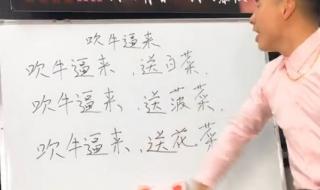 吹牛逼来
吹牛逼来,送白菜.
吹牛逼来、送菠菜.
吹牛逼来、送花菜